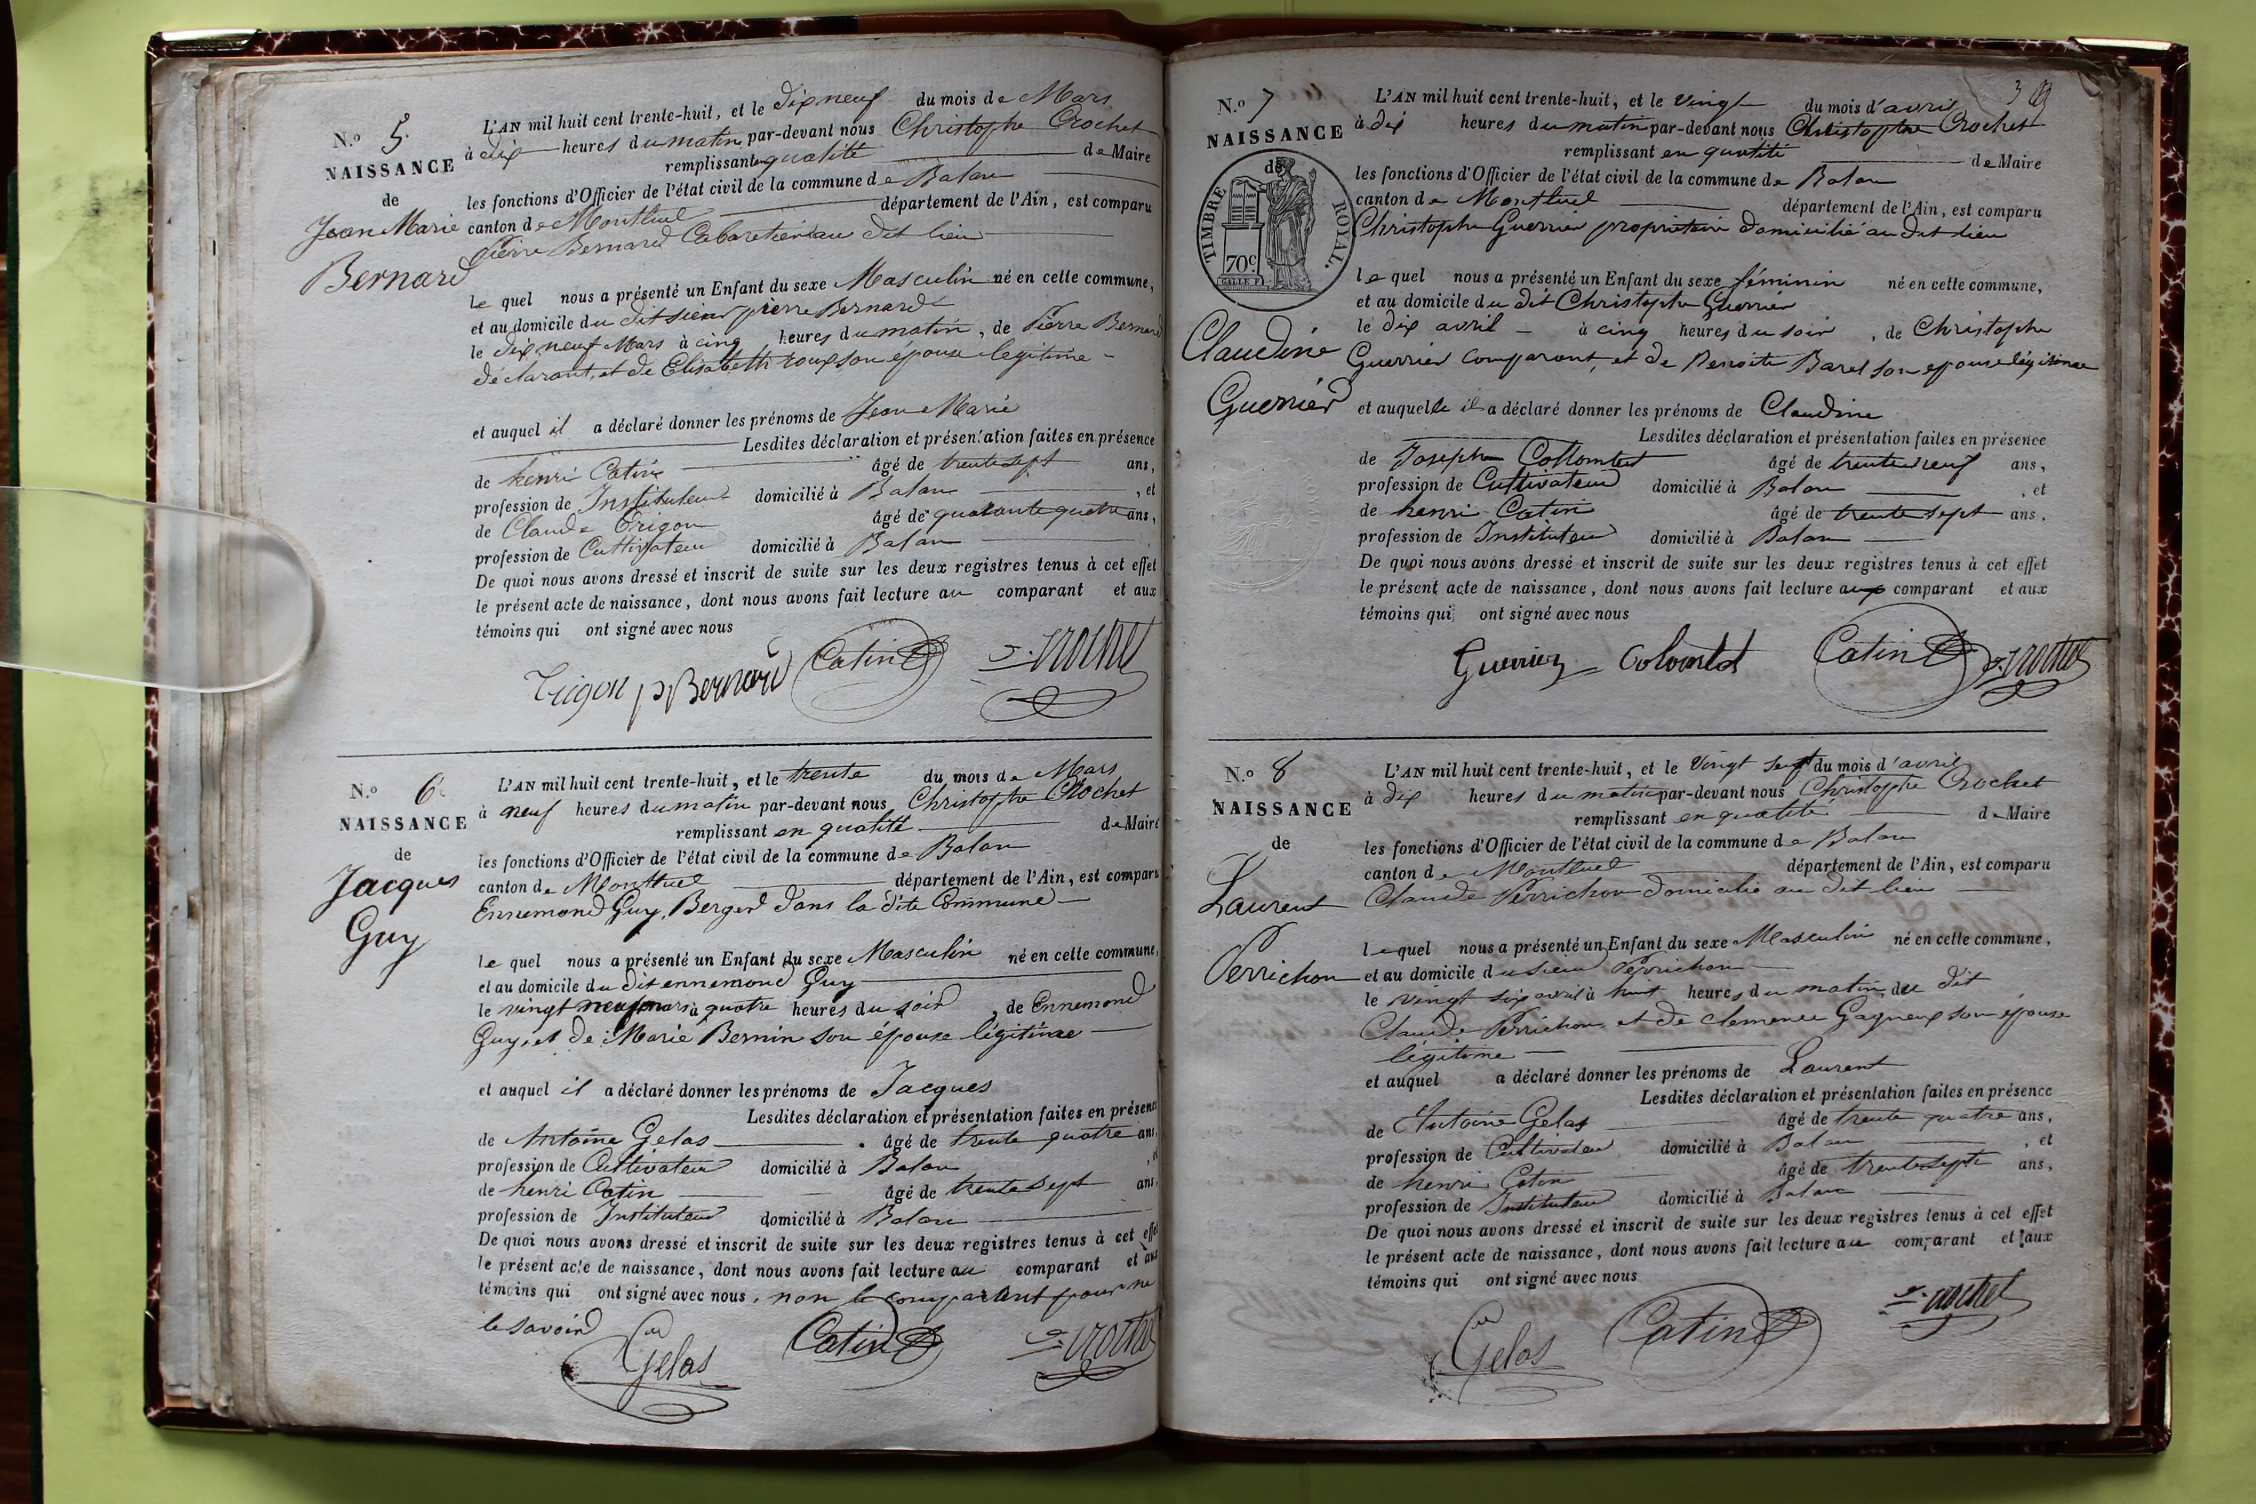 N.o 5.
NAISSANCE
de
Jean Marie
Bernard
L'AN mil huit cent trente-huit, et le dix neuf du mois de Mars
à dix heures du matin par-devant nous Christophe Crochet
remplissant en qualité de Maire
les fonctions d'Officier de l'état civil de la commune de Balan
canton de Montluel département de l'Ain, est comparu
pierre Bernard Cabaretier au dit lieu
le quel nous a présenté un Enfant du sexe Masculin né en cette commune,
et au domicile du dit sieur pierre Bernard
le dix neuf Mars à cinq heures du matin, de Pierre Bernard
déclarant, et de Elisabeth roux son épouse legitime
et auquel il a déclaré donner les prénoms de Jean Marie
Lesdites déclaration et présentation faites en présence
de henri Catin âgé de trente sept ans,
profession de Instituteur domicilié à Balan, et
de Claude Trigon âgé de quarante quatre ans,
profession de Cultivateur domicilié à Balan
De quoi nous avons dressé et inscrit de suite sur les deux registres tenus à cet effet
le présent acte de naissance, dont nous avons fait lecture au comparant et aux
témoins qui ont signé avec nous
Trigon p Bernard Catin Crochet
N.o 6
NAISSANCE
de
Jacques
Guy
L'AN mil huit cent trente-huit, et le trente du mois de Mars
à neuf heures du matin par-devant nous Christophe Crochet
remplissant en qualité de Maire
les fonctions d'Officier de l'état civil de la commune de Balan
canton de Montluel département de l'Ain, est comparu
Ennemond Guy, Berger dans la dite Commune
le quel nous a présenté un Enfant du sexe Masculin né en cette commune,
et au domicile du dit ennemond Guy
le vingt neuf mars à quatre heures du soir, de Ennemond
Guy, et de Marie Bernin son épouse légitime
et auquel il a déclaré donner les prénoms de Jacques
Lesdites déclaration et présentation faites en présence
de Antoine Gelas âgé de trente quatre ans,
profession de Cultivateur domicilié à Balan, et
de henri Catin âgé de trente sept ans,
profession de Instituteur domicilié à Balan
De quoi nous avons dressé et inscrit de suite sur les deux registres tenus à cet effet
le présent acte de naissance, dont nous avons fait lecture au comparant et aux
témoins qui ont signé avec nous, non le comparant pour ne
le savoir
Gelas Catin Crochet
3
N.o 7
NAISSANCE
de
TIMBRE ROYAL.
70c
Claudine
Guerrier
L'AN mil huit cent trente-huit, et le vingt du mois d'avril
à dix heures du matin par-devant nous Christophe Crochet
remplissant en qualité de Maire
les fonctions d'Officier de l'état civil de la commune de Balan
canton de Montluel département de l'Ain, est comparu
Christophe Guerrier propriétaire domicilié au dit lieu
le quel nous a présenté un Enfant du sexe féminin né en cette commune,
et au domicile du dit Christophe Guerrier
le dix avril à cinq heures du soir, de Christophe
Guerrier comparant, et de Benoite Barel son epouse légitimae
et auquelle il a déclaré donner les prénoms de Claudine
Lesdites déclaration et présentation faites en présence
de Joseph Collombet âgé de trente neuf ans,
profession de Cultivateur domicilié à Balan, et
de henri Catin âgé de trente sept ans,
profession de Instituteur domicilié à Balan
De quoi nous avons dressé et inscrit de suite sur les deux registres tenus à cet effet
le présent acte de naissance, dont nous avons fait lecture aux comparant et aux
témoins qui ont signé avec nous
Guerrier Catin Crochet
N.o 8
NAISSANCE
de
Laurent
Perrichon
L'AN mil huit cent trente-huit, et le vingt sept du mois d'avril
à dix heures du matin par-devant nous Christophe Crochet
remplissant en qualité de Maire
les fonctions d'Officier de l'état civil de la commune de Balan
canton de Montluel département de l'Ain, est comparu
Claude Perrichon domicilié au dit lieu
le quel nous a présenté un Enfant du sexe Masculin né en cette commune,
et au domicile du sieur Perrichon
le vingt six avril à huit heures du matin, du dit
Claude Perrichon et de clemence Gagneux son épouse
légitime
et auquel a déclaré donner les prénoms de Laurent
Lesdites déclaration et présentation faites en présence
de Antoine Gelas âgé de trente quatre ans,
profession de Cultivateur domicilié à Balan, et
de henri Catin âgé de trente sept ans,
profession de Instituteur domicilié à Balan
De quoi nous avons dressé et inscrit de suite sur les deux registres tenus à cet effet
le présent acte de naissance, dont nous avons fait lecture au comparant et aux
témoins qui ont signé avec nous
Gelas Catin Crochet